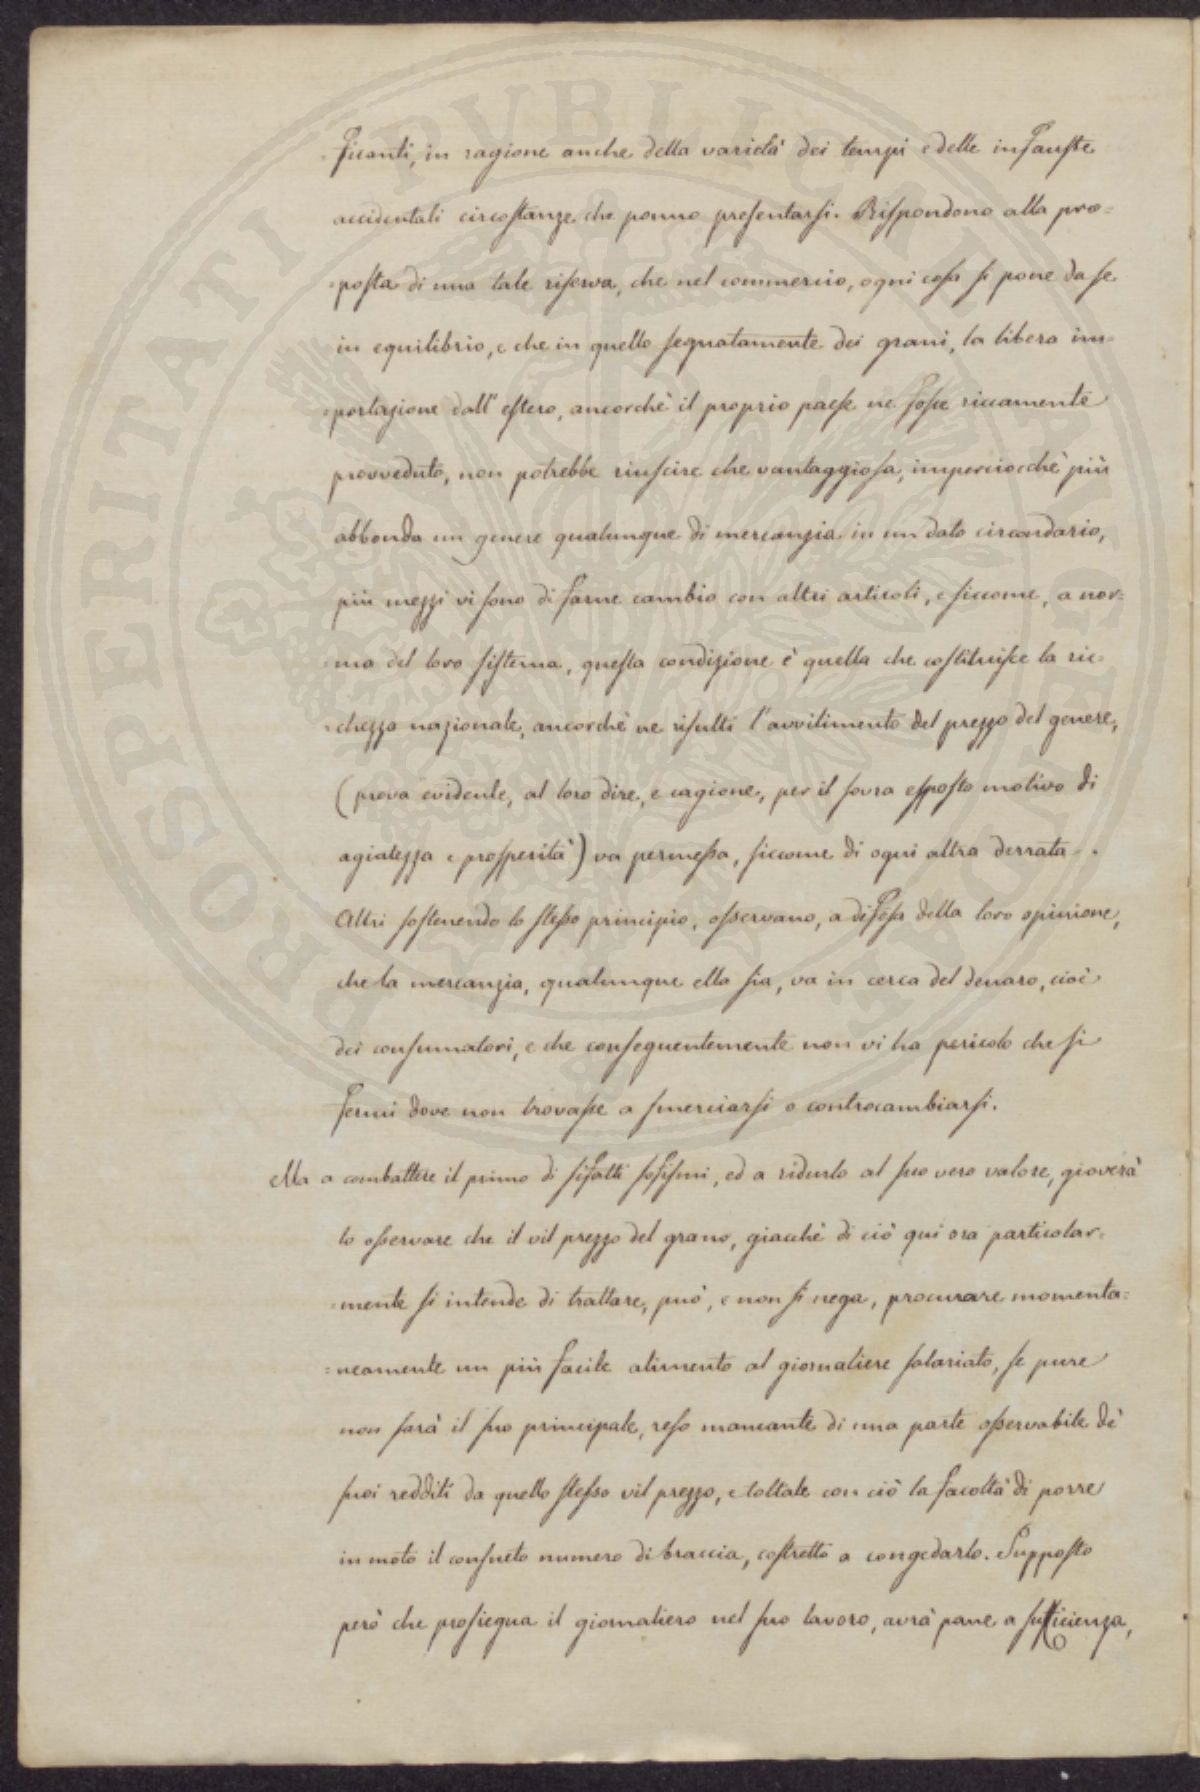 ficanti, in ragione anche della varietà dei tempi e delle infauſte
accidentali circoſtanze che ponno preſentarſi. Riſpondono alla pro=
=poſta di una tale riſerva, che nel commercio, ogni coſa ſi pone da ſe
in equilibrio, e che in quello ſegnatamente dei grani, la libera im=
=portazione dall' eſtero, ancorchè il proprio paeſe ne foſſe riccamente
provveduto, non potrebbe riuſcire che vantaggioſa, imperciocchè più
abbonda un genere qualunque di mercanzia in un dato circondario,
più mezzi vi ſono di farne cambio con altri articoli, e ſiccome, a nor=
=ma del loro ſiſtema, queſta condizione è quella che coſtituiſce la ric=
=chezza nazionale, ancorchè ne riſulti l'avvilimento del prezzo del genere,
(prova evidente, al loro dire, e cagione, per il ſovra eſpoſto motivo di
agiatezza e proſperità) va permeſsa, ſiccome di ogni altra derrata.
Altri ſoſtenendo lo ſteſso principio, oſservano, a difeſa della loro opinione,
che la mercanzia, qualunque ella ſia, va in cerca del denaro, cioè
dei conſumatori, e che conſeguentemente non vi ha pericolo che ſi
fermi dove non trovaſse a ſmerciarſi o controcambiarſi.
Ma a combattere il primo di ſifatti ſofiſmi, ed a ridurlo al ſuo vero valore, gioverà
lo oſservare che il vil prezzo del grano, giacchè di ciò qui ora particolar=
=mente ſi intende di trattare, può, e non ſi nega, procurare momenta=
=neamente un più facile alimento al giornaliere ſalariato, ſe pure
non ſarà il ſuo principale, reſo mancante di una parte oſservabile de'
ſuoi redditi da quello ſteſso vil prezzo, e toltale con ciò la facoltà di porre
in moto il conſueto numero di braccia, coſtretto a congedarlo. Suppoſto
però che proſiegua il giornaliero nel ſuo lavoro, avrà pane a ſufficienza,
PROSPERITATI PVBLICAE